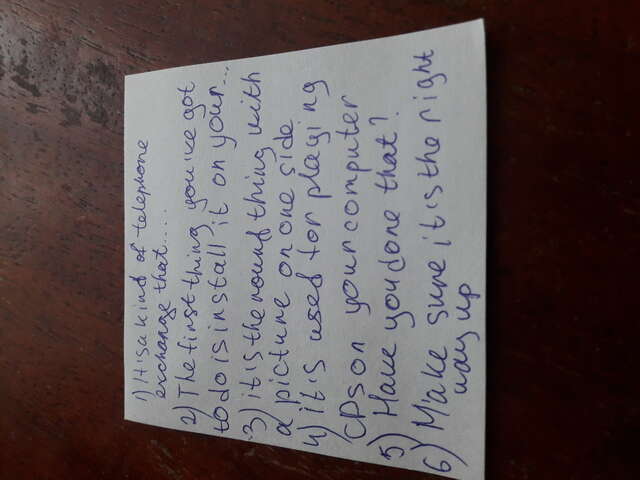 1) It is a kind of telephone
exchange that....
2) The first thing you've got
to do is install it on your...
3) it is the round thing with
a picture on one side
4) it is used for playing
CDs on your computer
5) Have you done that?
6) Make sure it is the right
way up